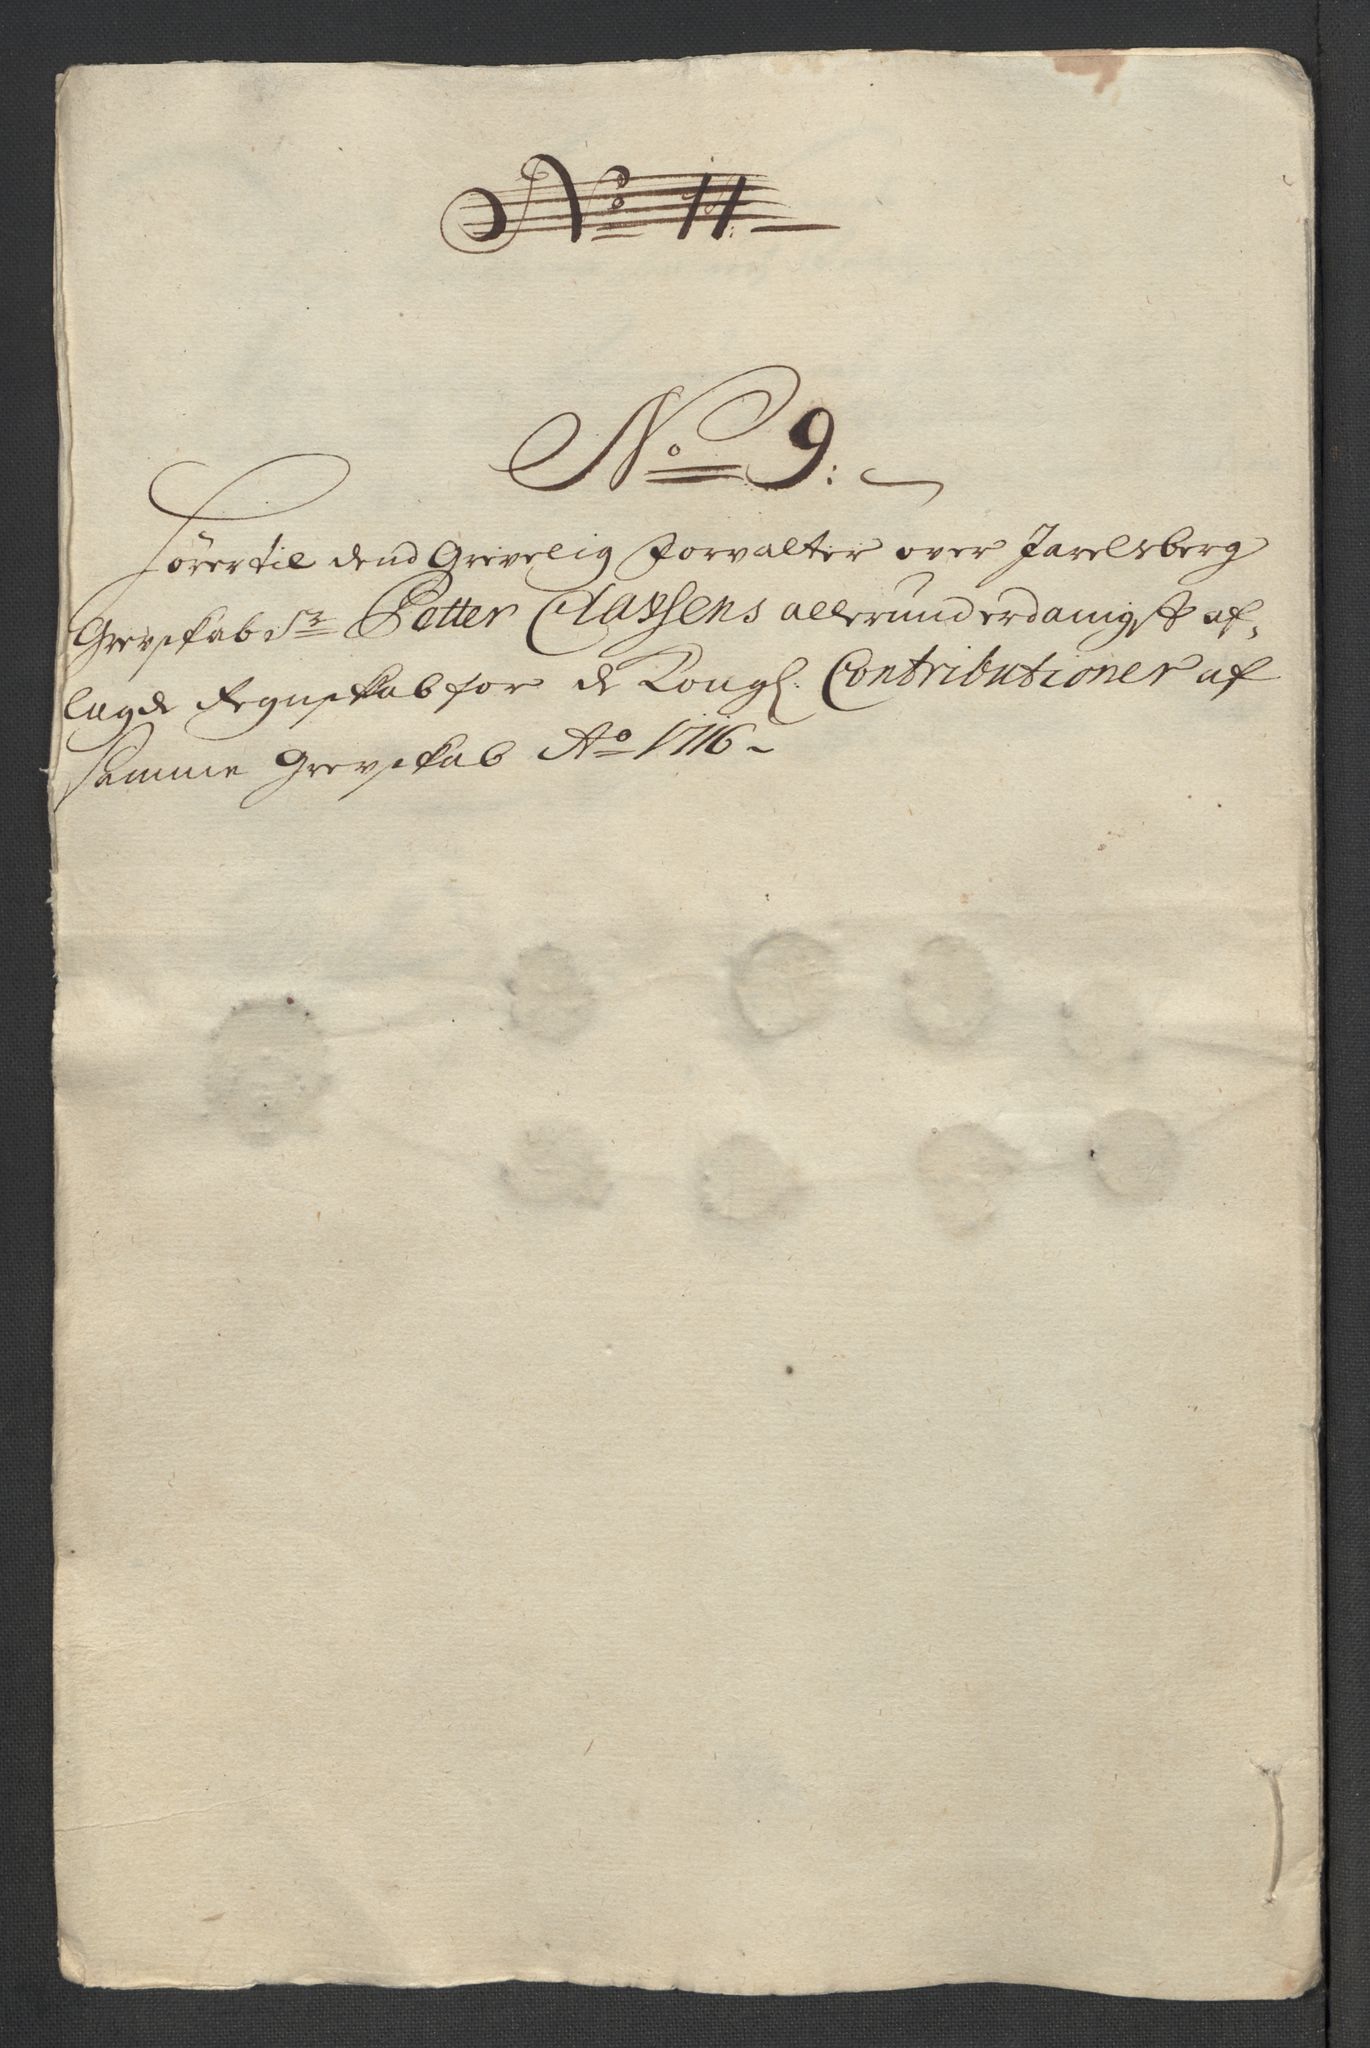 No 11.
No 9.
Hörer til dend Grevelig Forvalter over Jarelsberg
Grevskab Sr Petter Classens allerunderdanigst af-
lagde Regnskab for de Kongl. Contributioner af
Samme Grevskab Ao 1716